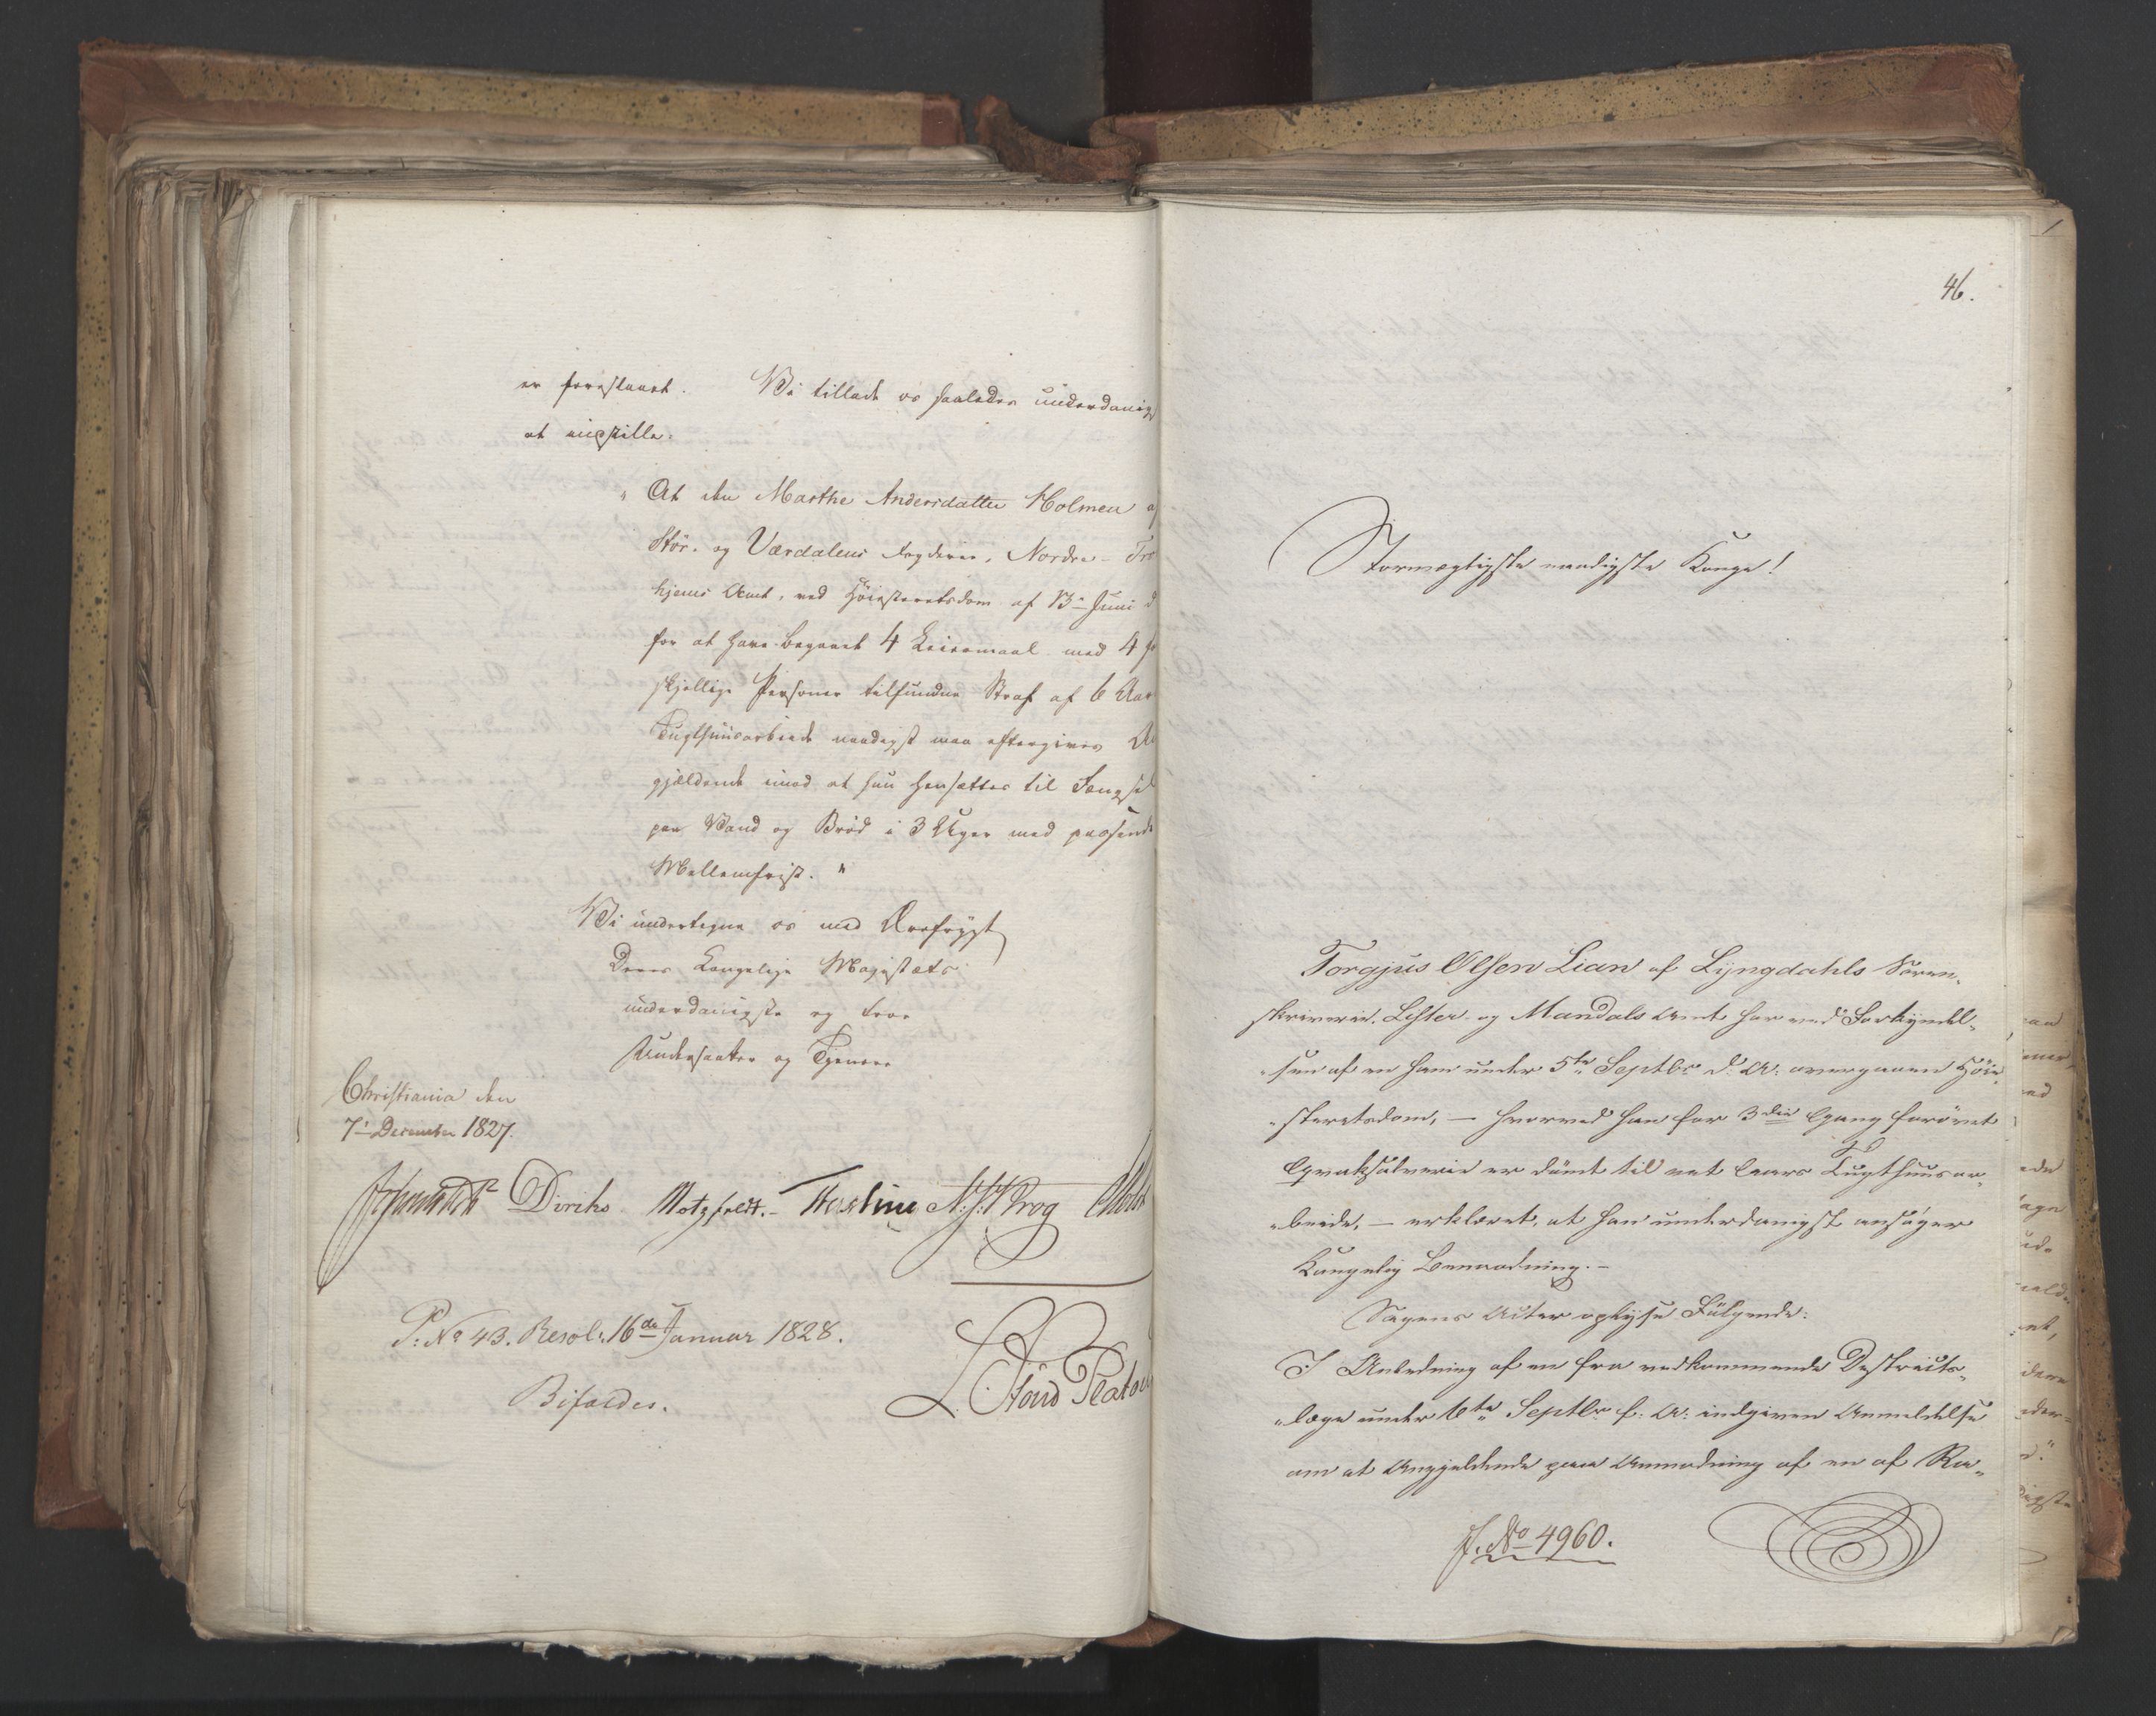 er foreslaaet. Vi tillade os saaledes underdanigst
at indstille:
"At den Marthe Andersdatter Holmen af
Stør- og Værdalens Fogderie, Nordre-Tro
hjems Amt, ved Høiesteretsdom af 13de Juni d
for at have begaaet 4 Leiermaal med 4 fo
skjellige Personer tilfundne Straf af 6 Aars
Tugthuusarbeide naadigst maa eftergives An
gjældende imod at hun hensættes til Fængsel
paa Vand og Brød i 3 Uger med passende
Mellemfrist."
Vi undertegne os med Ærefrygt
Deres Kongelige Majestæts
underdanigste og troe
Undersaatter og Tjenere
Christiania den
7de December 1827.
Diriks Motzfeldt. Fasting N: J: Krog Holst
P: No 43. Resol: 16de Januar 1828.
Bifaldes.
L. Stoud Platou
46.
Stormægtigste naadigste Konge!
Torgjus Olsen Lian af Lyngdahls Soren-
skriverie, Lister og Mandals Amt har ved Forkyndel-
"sen af en ham under 5te Septbr d: A: overgaaen Høie-
"steretsdom, – hvorved han for 3die Gang forøvet
Qvaksalverie er dømt til eet Aars Tugthuusar-
"beide, – erklæret, at han underdanigst ansøger
Kongelig Benaadning. –
Sagens Acter oplyse Følgende:
I Anledning af en fra vedkommende Destricts-
"læge under 6te Septbr f: A: indgiven Anmeldelse
om at Angjeldende paa Anmodning af en af Ro-
J. No 4960.